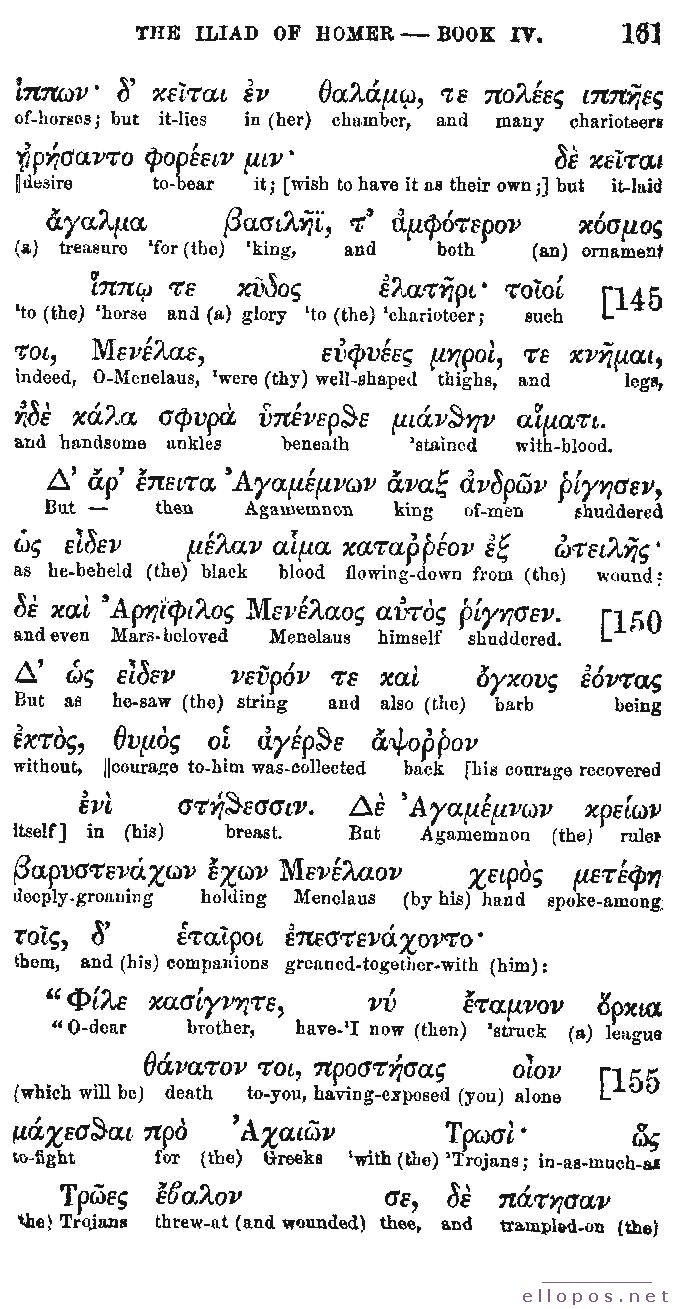 THE ILIAD OF HOMER — BOOK IV. 161
ἵππων· δ’ κεῖται ἐν θαλάμῳ, τε πολέες ιππῆες
of-horses; but it-lies in (her) chamber, and many charioteers
ἠρήσαντο φορέειν μιν· δὲ κεῖται
||desire to-bear it; [wish to have it as their own;] but it-laid
ἄγαλμα βασιλῆϊ, τ’ ἀμφότερον κόσμος
(a) treasure ‘for (the) ‘king, and both (an) ornament
ἵππῳ τε κῦδος ἐλατῆρι· τοῖοί [145
‘to (the) ‘horse and (a) glory ‘to (the) ‘charioteer; such
τοι, Μενέλαε, εὐφυέες μηροὶ, τε κνῆμαι,
indeed, O-Menelaus, ‘were (thy) well-shaped thighs, and legs,
ἠδὲ κάλα σφυρὰ ὑπένερϑε μιάνϑην αἵματι.
and handsome ankles beneath ‘stained with-blood.
Δ’ ἄρ’ ἔπειτα Ἀγαμέμνων ἄναξ ἀνδρῶν ῥίγησεν,
But — then Agamemnon king of-men shuddered
ὡς εἶδεν μέλαν αἷμα καταῤῥέον ἐξ ὠτειλῆς·
as he-beheld (the) black blood flowing-down from (the) wound:
δὲ καὶ Ἀρηΐφιλος Μενέλαος αὐτὸς ῥίγησεν. [150
and even Mars-beloved Menelaus himself shuddered.
Δ’ ὡς εἶδεν νεῦρόν τε καὶ ὄγκους ἐόντας
But as he-saw (the) string and also (the) barb being
ἐκτὸς, θυμὸς οἱ ἀγέρϑε ἄψοῤῥον
without, ||courage to-him was-collected back [his courage recovered
ἐνὶ στήϑεσσιν. Δὲ Ἀγαμέμνων κρείων
itself] in (his) breast. But Agamemnon (the) ruler
βαρυστενάχων ἔχων Μενέλαον χειρὸς μετέφη
deeply-groaning holding Menelaus (by his) hand spoke-among
τοῖς, δ’ ἑταῖροι ἐπεστενάχοντο·
them, and (his) companions groaned-together-with (him):
“Φίλε κασίγνητε, νύ ἔταμνον ὅρκια
“O-dear brother, have-‘I now (then) ‘struck (a) league
θάνατον τοι, προστήσας οἶον [155
(which will be) death to-you, having-exposed (you) alone
μάχεσϑαι πρὸ Ἀχαιῶν Τρωσὶ· ὥς
to-fight for (the) Greeks ‘with (the) ‘Trojans; in-as-much-as
Τρῶες ἔβαλον σε, δὲ πάτησαν
the) Trojans threw-at (and wounded) thee, and trampled-on (the)
ellopos.net